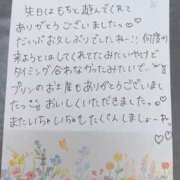 先日はもちと遊んでくれて
ありがとうございましたっ♡
だいぶお久しぶりでしたねー!! 何度か
来ようとはしてくれてたみたいやけど
タイミング合わなかったみたいで、
プリンのお土産もありがとうございまし
たっ おいしくいただきました。
またいちゃいちゃもたくさんしましょーね